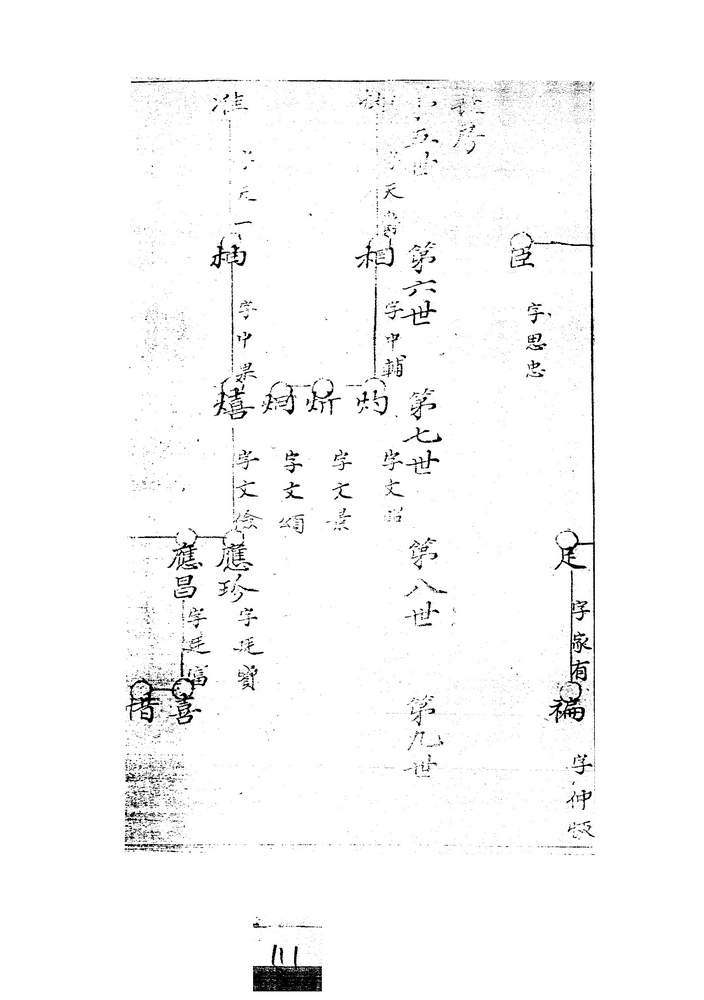 臣
字思忠
足
字家有
褔
字仲
房
第五世
第六世
第七世
第八世
第九世
字天
相
字中輔
灼
字文昭
炘
字文景
炯
字文頌
准
字元一
柟
字中果
熺
字文儉
應珍
字廷寶
應昌
字廷富
喜
惜
111